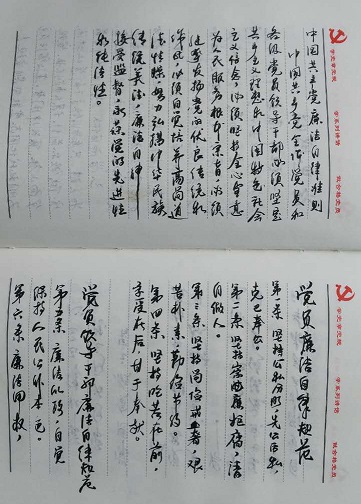 学党章党规
学系列讲话
做合格党员
中国共产党廉洁自律准则
中国共产党全体党员和
各级党员领导干部必须坚定
共产主义理想和中国特色社会
主义信念,必须坚持全心全意
为人民服务根本宗旨,必须
继承发扬党的优良传统和
作风,必须自觉培养高尚道
德情操,努力弘扬中华民族
传统美德,廉洁自律
接受监督,永葆党的先进性
和纯洁性。
学党章党规
学系列讲话
做合格党员
党员廉洁自律规范
第一条 坚持公私分明,先公后私,
克己奉公。
第二条 坚持崇廉拒腐,清
白做人。
第三条 坚持尚俭戒奢,艰
苦朴素,勤俭节约。
第四条 坚持吃苦在前,
享受在后,甘于奉献。
党员领导干部廉洁自律规范
第五条 廉洁从政,自觉
保持人民公仆本色。
第六条 廉洁用权,